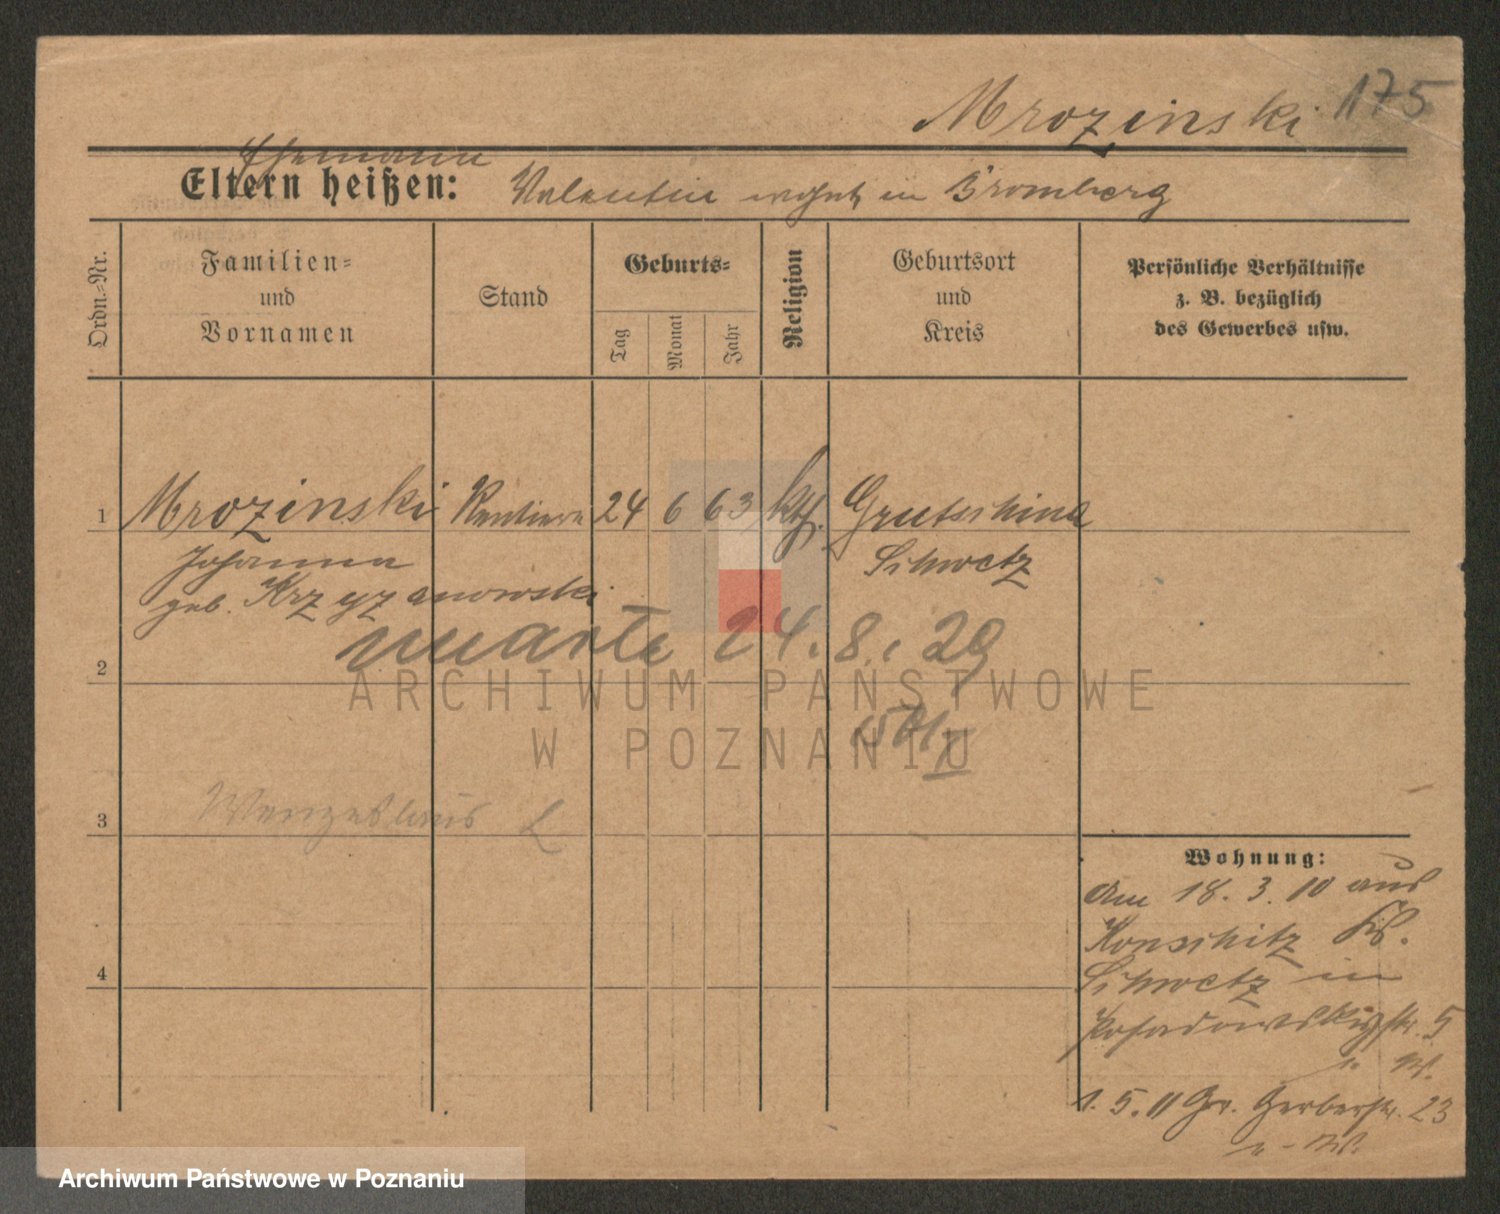 Mrozinski 175
Ehemann
Eltern heißen: Valentin wohnt in Bromberg
Ordn.-Nr.
Familien- und Vornamen
Stand
Geburts-
Tag
Monat
Jahr
Religion
Geburtsort und Kreis
Persönliche Verhältnisse
z. B. bezüglich
des Gewerbes usw.
1 Mrozinski Rentiere 24 6 63 kth. Grutschina
Johanna Schwetz
geb. Krzyzanowski
umarła 24.8. 29
2
3
4
Wohnung:
Am 18. 3. 10 aus
Konschitz Kr.
Schwetz in
Posadowskystr. 5
1. 5. 11 Gr. Gerberstr. 23
ARCHIWUM PAŃSTWOWE
W POZNANIU
Archiwum Państwowe w Poznaniu